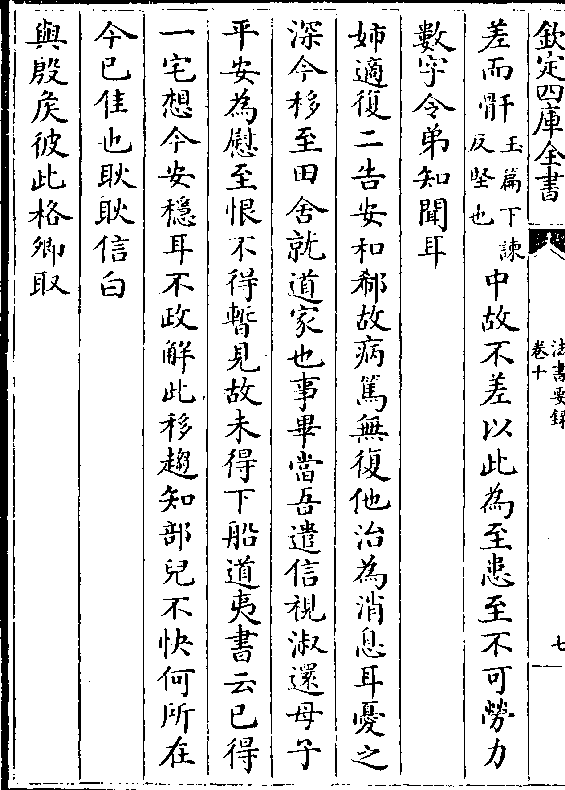 欽定四庫全書
法書要錄
卷十
七
差而骭玉篇下諫反堅也中故不差以此為至患至不可勞力
數字令弟知聞耳
姊適復二告安和郗故病篤無復他治為消息耳憂之
深今移至田舍就道家也事畢當吾遣信視淑還母子
平安為慰至恨不得暫見故未得下船道夷書云已得
一宅想今安穩耳不政解此移趨知部兒不快何所在
今已佳也耿耿信白
與殷侯彼此格卿取